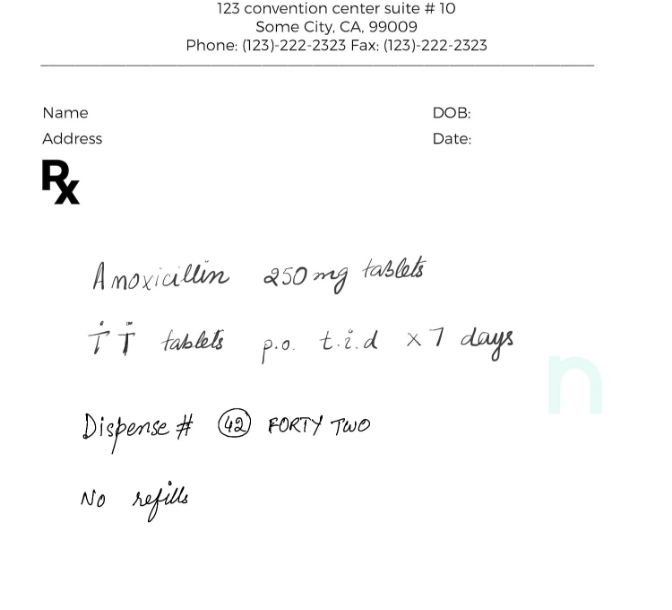 123 convention center suite # 10
Some City, CA, 99009
Phone: (123)-222-2323 Fax: (123)-222-2323
Name DOB:
Address Date:
Rx
Amoxicillin 250 mg tablets
i̅ i̅ tablets p.o. t.i.d x 7 days
Dispense # 42 FORTY TWO
No refills
n